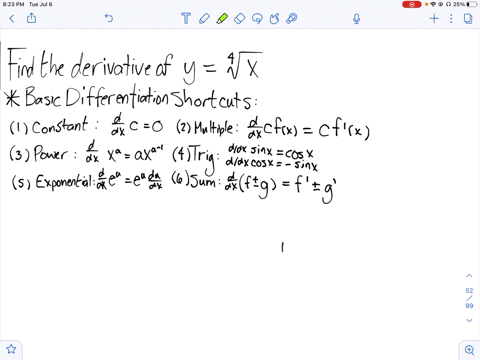 8:23 PM Tue Jul 6
25%
Find the derivative of y = ∜x
* Basic Differentiation Shortcuts:
(1) Constant: d/dx c = 0 (2) Multiple: d/dx cf(x) = cf'(x)
(3) Power: d/dx x^a = ax^(a-1) (4) Trig: d/dx sinx = cosx
d/dx cosx = -sinx
(5) Exponential: d/dx e^u = e^u du/dx (6) Sum: d/dx (f ± g) = f' ± g'
52
/
99